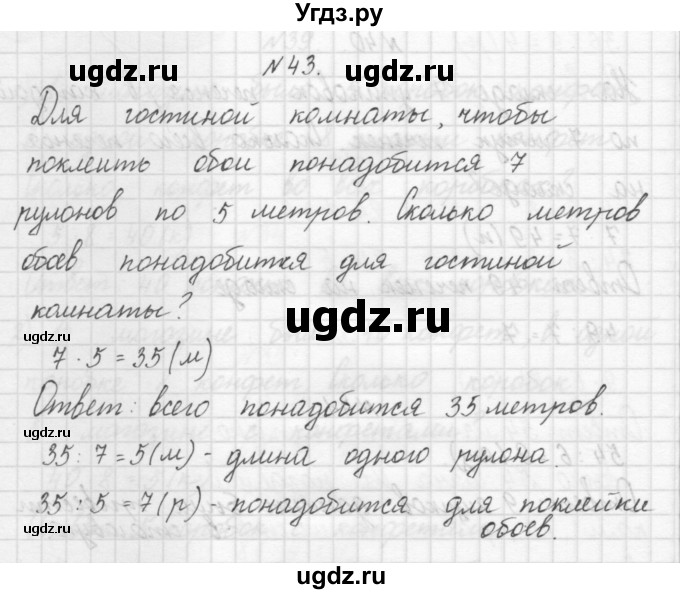 Угдз.ру
ugdz.ru ugdz.ru
№43.
Для гостиной комнаты, чтобы
поклеить обои понадобится 7
рулонов по 5 метров. Сколько метров
обоев понадобится для гостиной
комнаты?
ugdz.ru ugdz.ru
7 · 5 = 35 (м)
Ответ: всего понадобится 35 метров.
ugdz.ru
35 : 7 = 5 (м) - длина одного рулона.
ugdz.ru
35 : 5 = 7 (р) - понадобится для поклейки
обоев.
ugdz.ru